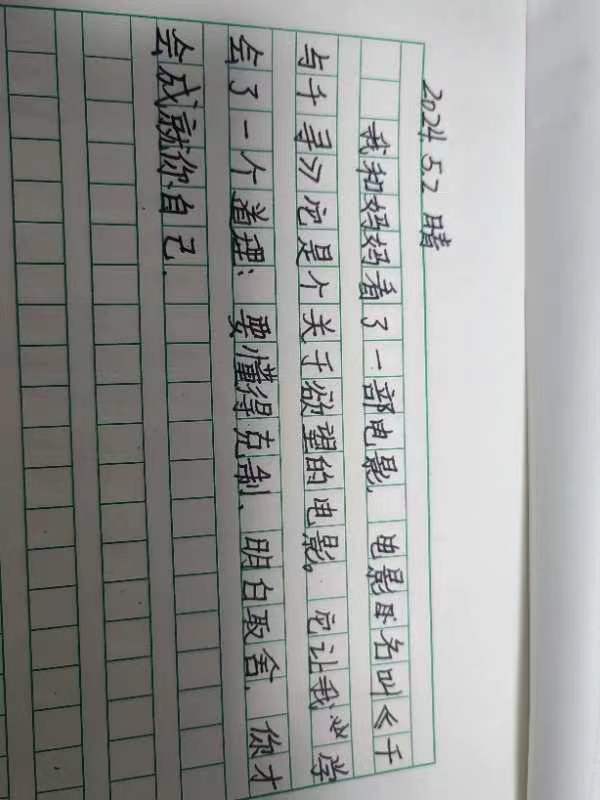 2024 5.2 晴
我和妈妈看了一部电影,电影名叫《千
与千寻》它是个关于欲望的电影。它让我学
会了一个道理:要懂得克制、明白取舍,你才
会成就你自己.